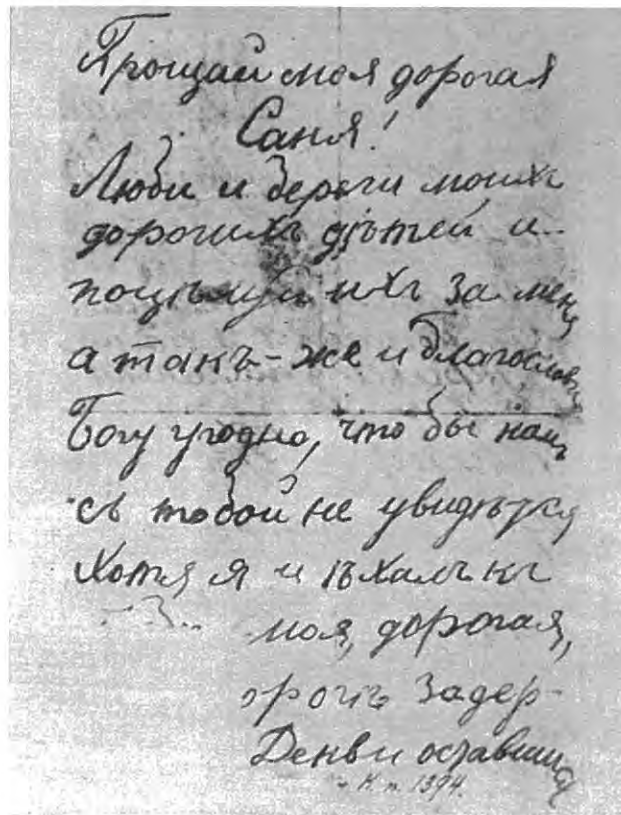 Прощай моя дорогая
Саня!
Люби и береги моихъ
дорогихъ дѣтей и
поцѣлуй ихъ за меня
а такъ-же и благослови
Богу угодно, что бы намъ
съ тобой не увидѣться
Хотя я и ѣхалъ къ
моя, дорогая,
задер-
оставшися
К п. 1394.